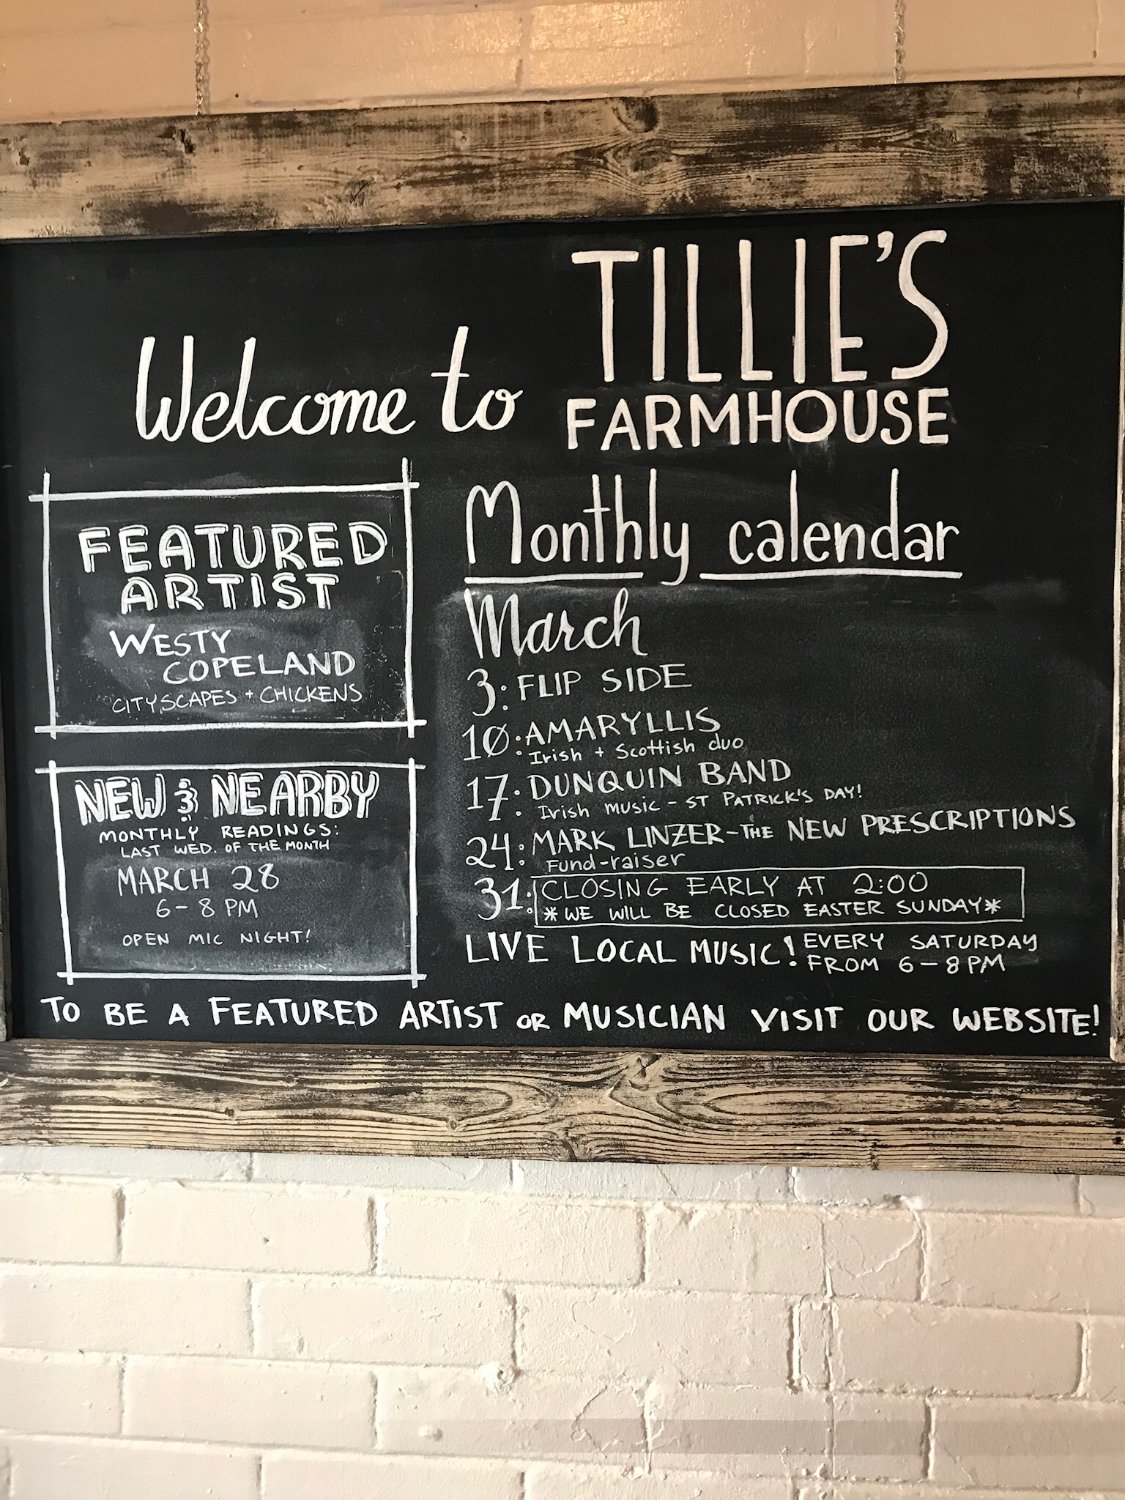 Welcome to TILLIE'S
FARMHOUSE
FEATURED
ARTIST
WESTY
COPELAND
CITYSCAPES + CHICKENS
NEW & NEARBY
MONTHLY READINGS:
LAST WED. OF THE MONTH
MARCH 28
6-8 PM
OPEN MIC NIGHT!
Monthly calendar
March
3: FLIP SIDE
10: AMARYLLIS
Irish + Scottish duo
17: DUNQUIN BAND
Irish music - ST PATRICK'S DAY!
24: MARK LINZER-THE NEW PRESCRIPTIONS
Fund-raiser
31: CLOSING EARLY AT 2:00
*WE WILL BE CLOSED EASTER SUNDAY*
LIVE LOCAL MUSIC! EVERY SATURDAY
FROM 6-8PM
TO BE A FEATURED ARTIST OR MUSICIAN VISIT OUR WEBSITE!